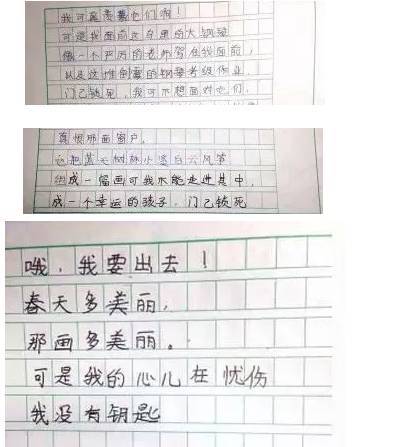 我可真羡慕他们啊！
可是我面前这台黑的大钢琴
像一个严厉的老师在我面前，
以及这堆倒霉的钢琴考级作业，
门已锁死，我可不想面对它们，
真恨那面窗户，
它把蓝天树林小鸟白云风筝
组成一幅画可我不能走进其中，
成一个幸运的孩子，门已锁死
哦，我要出去！
春天多美丽，
那画多美丽。
可是我的心儿在忧伤
我没有钥匙